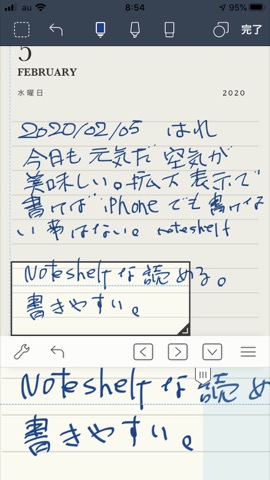 au 8:54 95%
完了
5
FEBRUARY
水曜日 2020
2020/02/05 はれ
今日も元気だ空気が
美味しい。拡大表示で
書けば iPhoneでも書けな
い事はない。noteshelf
Noteshelfな読める。
書きやすい。
Noteshelfな読め
書きやすい。